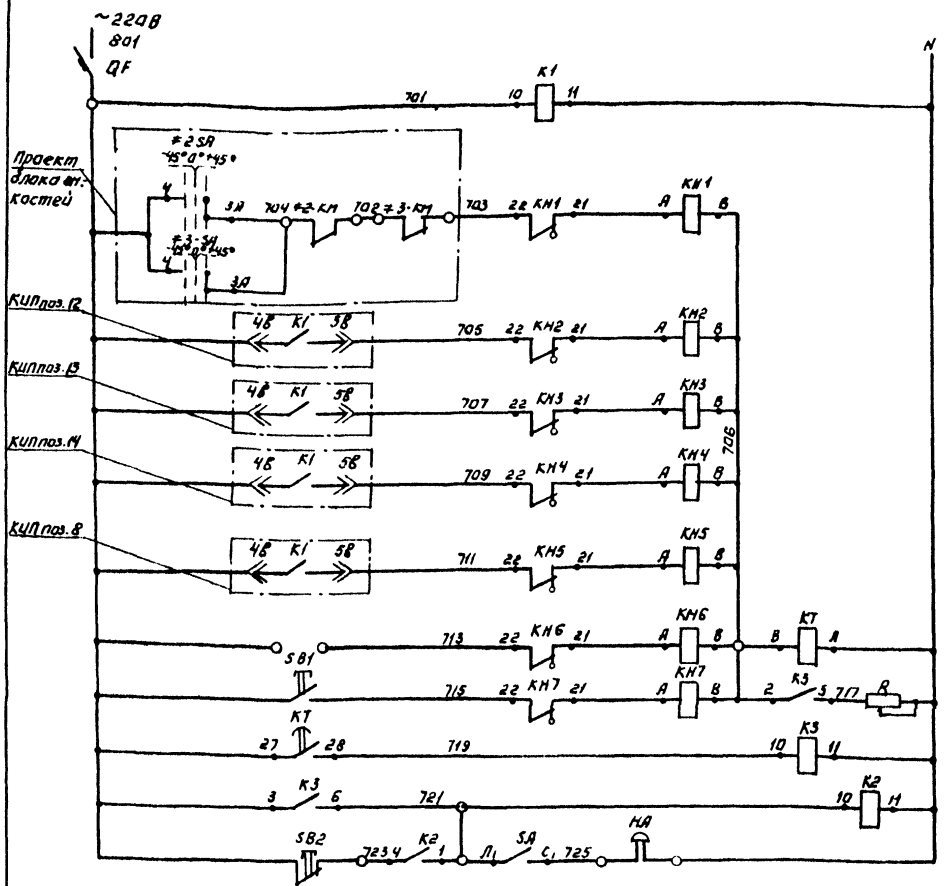 ~220В
801
QF
N
К1
701 10 11
Проект
блока ем-
костей
≠2SA
-45° 0° +45°
4 3А 704 ≠2-КМ 702 ≠3-КМ 703 22 КН1 21 А КН1 В
≠3-SA
-45° 0° +45°
4 3А
КИП поз.12
4В К1 5В 705 22 КН2 21 А КН2 В
КИП поз.13
4В К1 5В 707 22 КН3 21 А КН3 В
706
КИП поз.14
4В К1 5В 709 22 КН4 21 А КН4 В
КИП поз.8
4В К1 5В 711 22 КН5 21 А КН5 В
713 22 КН6 21 А КН6 В В КТ А
SB1 715 22 КН7 21 А КН7 В 2 К3 5 717 R
КТ
27 28 719 10 К3 11
К3
3 6 721 10 К2 11
SB2 723 4 К2 1 Л1 SA С1 725 НА